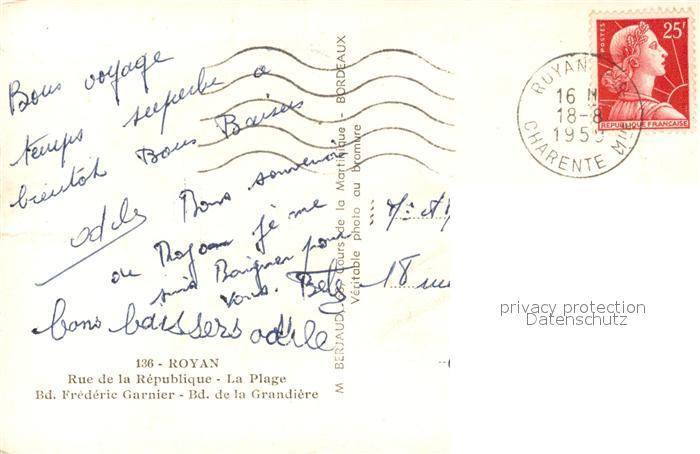 Bons voyage
temps superbe a
bientot Bons Baisers
odile Bons souvenir
de Royan je me
suis Baigner pour
vous.
bons baissers odile
136 - ROYAN
Rue de la République - La Plage
Bd. Frédéric Garnier - Bd. de la Grandière
M BERJAUD, Cours de la Martinique - BORDEAUX
Véritable photo au bromure
18
ROYAN
16 H
18-8
195
CHARENTE Mme
POSTES
25F
REPUBLIQUE FRANÇAISE
privacy protection
Datenschutz